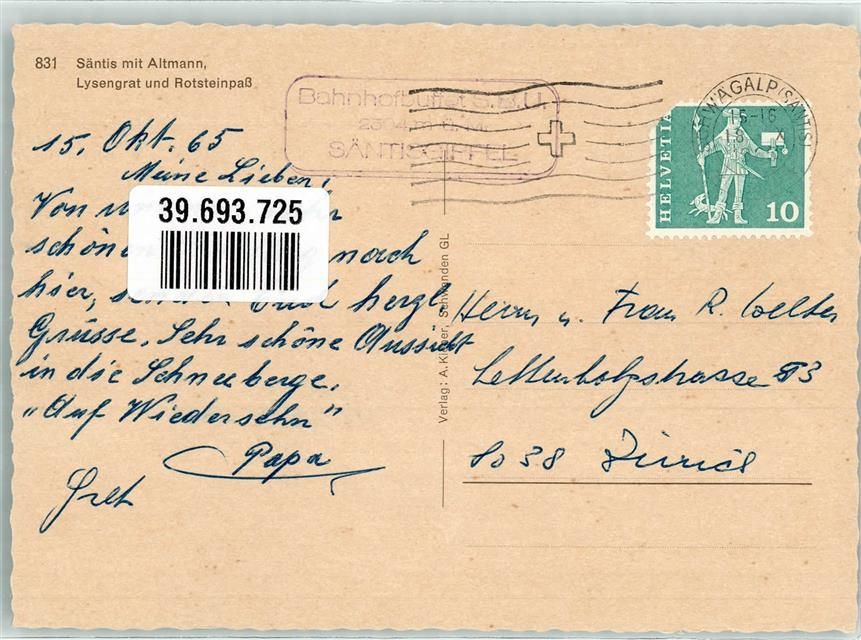 831 Säntis mit Altmann,
Lysengrat und Rotsteinpaß
Bahnhofbuffet S.B.U.
2504 m ü. M.
SÄNTISGIPFEL
SCHWÄGALP (SÄNTIS)
15-16
HELVETIA
10
15. Okt. 65
Meine Lieben,
39.693.725
Von
schönen nach
hier, Euch herzl.
Grüsse. Sehr schöne Aussicht
in die Schneeberge.
"Auf Wiedersehn"
Papa
Verlag: A. Schwanden GL
Herrn u. Frau R.
53
8038 Zürich